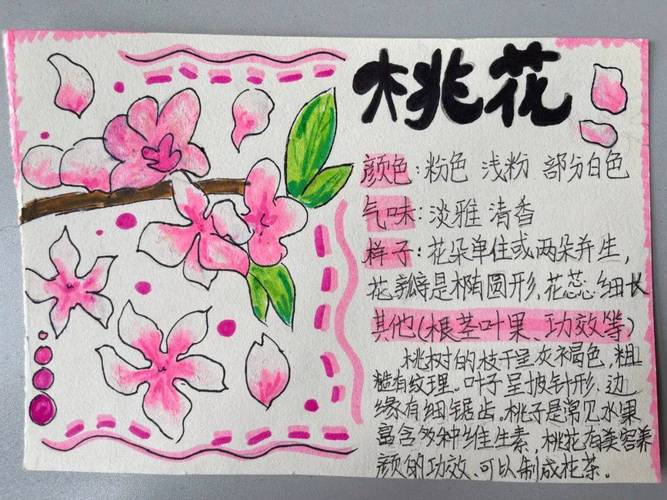 桃花
颜色：粉色 浅粉 部分白色
气味：淡雅 清香
样子：花朵单住或两朵并生，
花瓣是椭圆形、花蕊细长
其他（根茎叶果、功效等）
桃树的枝干呈灰褐色，粗
糙有纹理。叶子呈披针形，边
缘有细锯齿。桃子是常见水果
富含多种维生素，桃花有美容养
颜的功效、可以制成花茶。